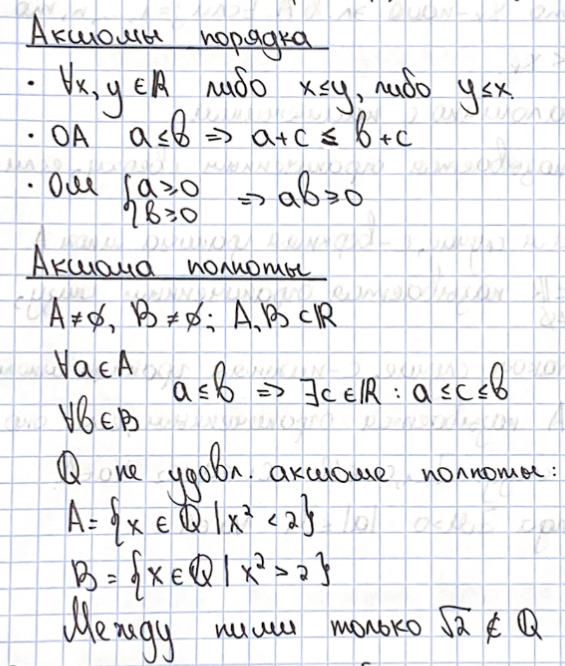 Аксиомы порядка
· ∀x, y ∈ ℝ либо x ≤ y, либо y ≤ x
· ОА a ≤ b ⇒ a + c ≤ b + c
· ОМ { a ≥ 0
{ b ≥ 0 ⇒ ab ≥ 0
Аксиома полноты
A ≠ ∅, B ≠ ∅; A, B ⊂ ℝ
∀a ∈ A
a ≤ b ⇒ ∃c ∈ ℝ : a ≤ c ≤ b
∀b ∈ B
Q не удовл. аксиоме полноты:
A = {x ∈ Q | x² < 2}
B = {x ∈ Q | x² > 2}
Между ними только √2 ∉ Q